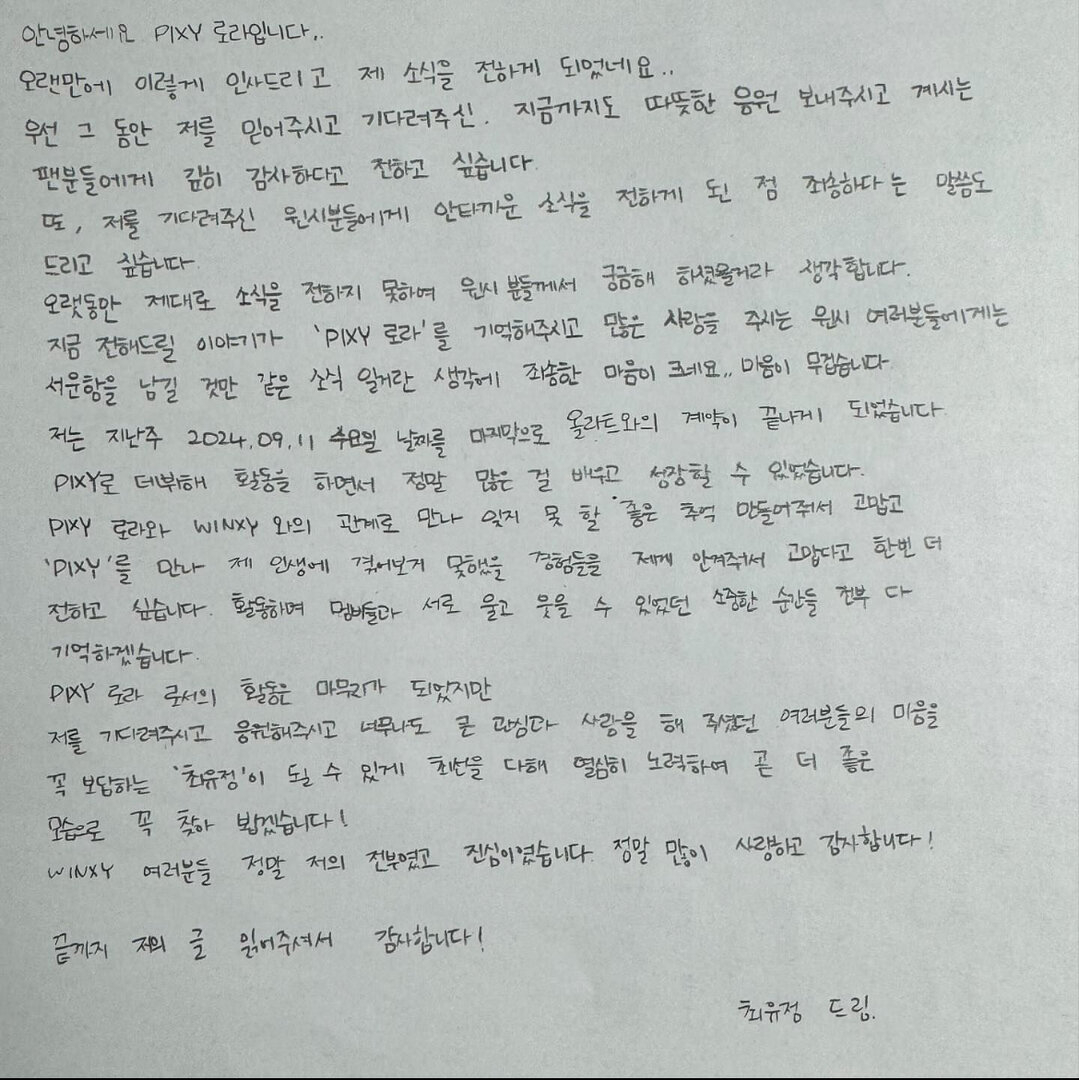 안녕하세요 PIXY 로라입니다..
오랜만에 이렇게 인사드리고 제 소식을 전하게 되었네요..
우선 그 동안 저를 믿어주시고 기다려주신. 지금까지도 따뜻한 응원 보내주시고 계시는
팬분들에게 깊히 감사하다고 전하고 싶습니다.
또, 저를 기다려주신 윈시분들에게 안타까운 소식을 전하게 된 점 죄송하다는 말씀도
드리고 싶습니다.
오랫동안 제대로 소식을 전하지 못하여 윈시 분들께서 궁금해 하셨을거라 생각합니다.
지금 전해드릴 이야기가 'PIXY 로라'를 기억해주시고 많은 사랑을 주시는 윈시 여러분들에게는
서운함을 남길 것만 같은 소식 일거란 생각에 죄송한 마음이 크네요.. 마음이 무겁습니다.
저는 지난주 2024.09.11 수요일 날짜를 마지막으로 올라트와의 계약이 끝나게 되었습니다.
PIXY로 데뷔해 활동을 하면서 정말 많은 걸 배우고 성장할 수 있었습니다.
PIXY 로라와 WINXY 와의 관계로 만나 잊지 못 할 좋은 추억 만들어줘서 고맙고
'PIXY'를 만나 제 인생에 겪어보지 못했을 경험들을 제게 안겨줘서 고맙다고 한번 더
전하고 싶습니다. 활동하며 멤버들과 서로 울고 웃을 수 있었던 소중한 순간들 전부 다
기억하겠습니다.
PIXY 로라 로서의 활동은 마무리가 되었지만
저를 기다려주시고 응원해주시고 너무나도 큰 관심과 사랑을 해 주셨던 여러분들의 마음을
꼭 보답하는 '최유정'이 될 수 있게 최선을 다해 열심히 노력하여 곧 더 좋은
모습으로 꼭 찾아 뵙겠습니다!
WINXY 여러분들 정말 저의 전부였고 진심이였습니다. 정말 많이 사랑하고 감사합니다!
끝까지 저의 글 읽어주셔서 감사합니다!
최유정 드림.